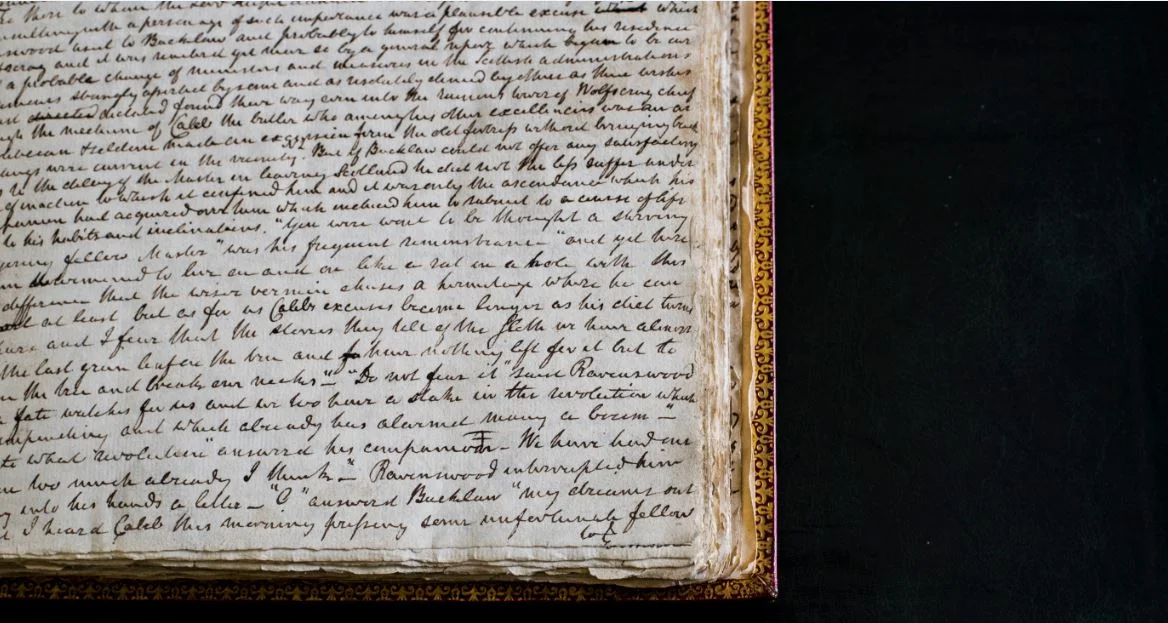 there to whom the
consulting with a personage of such importance was a plausible excuse which
Ravenswood used to Bucklaw and probably to himself for continuing his residence
and it was rendered yet more so by a general report which began to be cur
a probable change of ministers and measures in the Scottish administration
strongly asserted by some and as resolutely denied by others as their wishes
directed dictated found their way even into the ruinous tower of Wolfscrag chief
through the medium of Caleb the butler who among his other excellencies was an ar
seldom made an excursion from the old fortress without bringing back
were current in the vicinity. But if Bucklaw could not offer any satisfactory
to the delay of the Master in leaving Scotland he did not the less suffer under
of inaction to which it confined him and it was only the ascendance which his
had acquired over him which induced him to submit to a course of life
to his habits and inclinations. "You were wont to be thought a stirring
fellow Master" was his frequent remonstrance "and yet here
determined to live on and on like a rat in a hole with this
difference that the wiser vermin chuses a hermitage where he can
at least but as for us Calebs excuses become longer as his diet turns
and I fear that the stories they tell of the sloth we have almost
the last green leaf on the tree and have nothing left for it but to
the tree and break our necks" – "Do not fear it" said Ravenswood
fate watches for us and we too have a stake in the revolution which
impending and which already has alarmed many a bosom –
what revolution" answerd his companion – We have had our
too much already I think – Ravenswood interrupted him
into his hands a letter – "O" answerd Bucklaw "my dreams out
I heard Caleb this morning pressing some unfortunate fellow
to